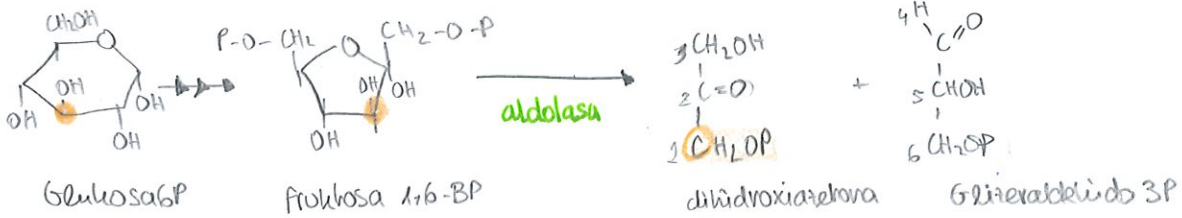 CH₂OH
O
OH
OH
OH
OH
Glukosa6P
P-O-CH₂
O
CH₂-O-P
OH
OH
OH
fruktosa 1,6-BP
aldolasa
3CH₂OH
2C(=O)
1CH₂OP
dihidroxiazetona
+
4H
C=O
5CHOH
6CH₂OP
Glizeraldehido 3P